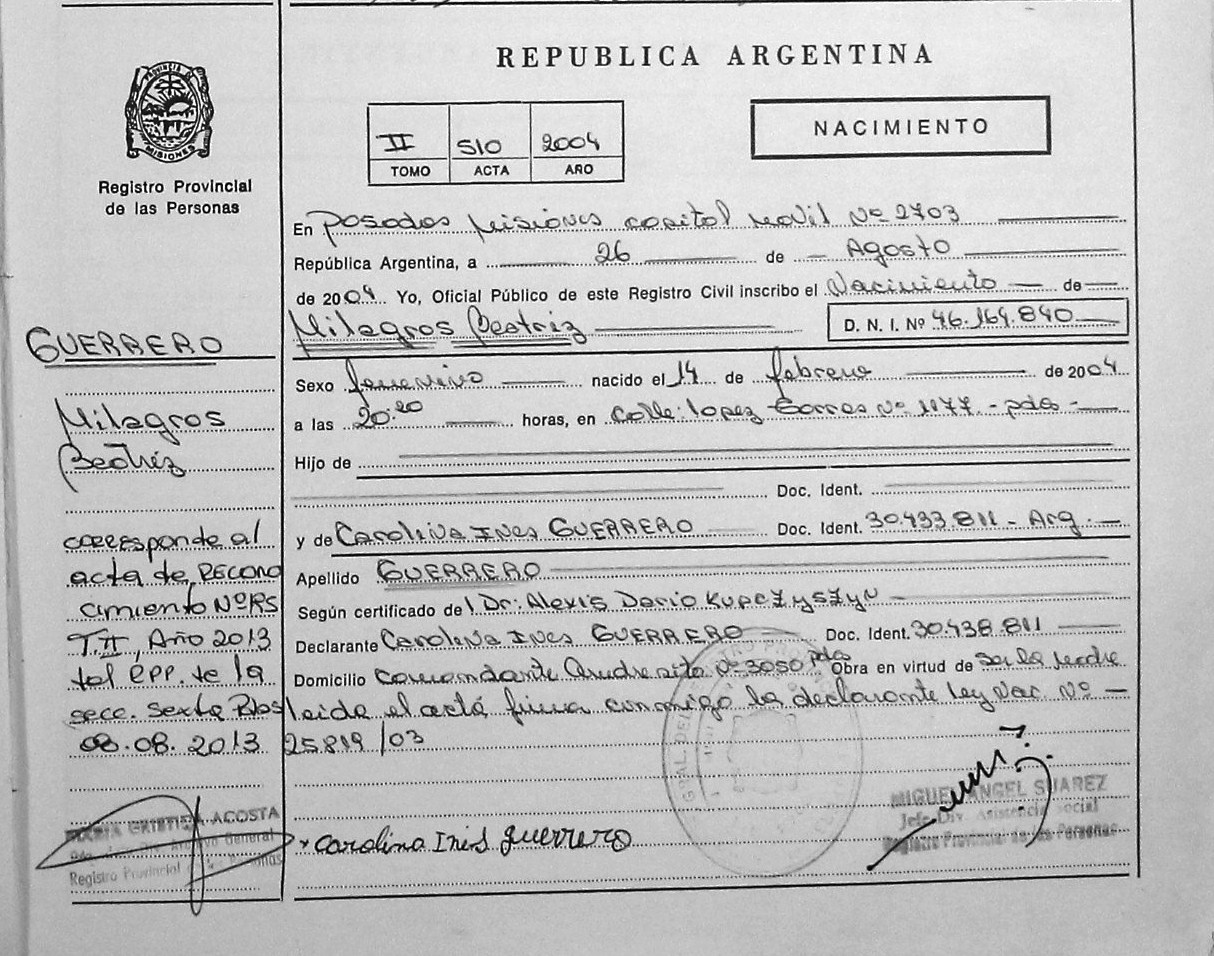 REPUBLICA ARGENTINA
PROVINCIA DE
MISIONES
Registro Provincial
de las Personas
II 510 2004
TOMO ACTA AÑO
NACIMIENTO
En Posadas Misiones capital Movil Nº 2703
República Argentina, a 26 de Agosto
de 2004 Yo, Oficial Público de este Registro Civil inscribo el Nacimiento de
Milagros Beatriz D. N. I. Nº 46.164.840
Sexo femenino nacido el 14 de febrero de 2004
a las 20:20 horas, en Calle: Lopez Torres Nº 1177 - pdas -
Hijo de
Doc. Ident.
y de Carolina Ines GUERRERO Doc. Ident. 30.433.811 - Arg. -
Apellido GUERRERO
Según certificado del Dr: Alexis Dario Kupczyszyn
Declarante Carolina Ines GUERRERO Doc. Ident. 30.438.811
Domicilio Comandante Andresito Nº 3050 pdas Obra en virtud de Ser la Madre
leida el acta firma conmigo la declarante ley Nac. Nº -
25.819/03
GUERRERO
Milagros
Beatriz
corresponde al
acta de Recono
cimiento Nº 85
T. II, Año 2013
del
de la
secc. sexta Pdas
08.08.2013
MARIA CRISTINA ACOSTA
General
Registro Provincial de las Personas
x Carolina Inés guerrero
MIGUEL ANGEL SUAREZ
Jefe Div. Asistencia Social
Registro Provincial de las Personas